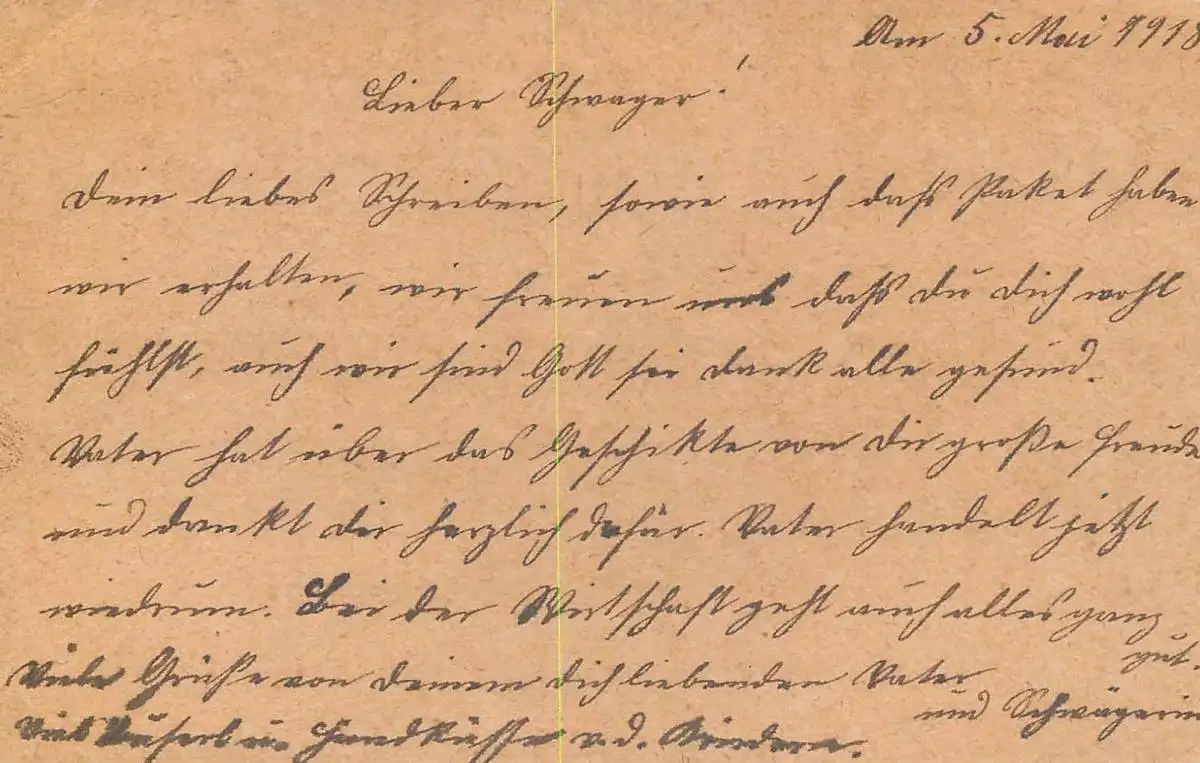 Am 5. Mai 1918
Lieber Schwager!
Dein liebes Schreiben, sowie auch daß Paket haben
wir erhalten, wir freuen uns daß du dich wohl
fühlst, auch wir sind Gott sei dank alle gesund.
Vater hat über das Geschikte von dir große Freude
und dankt dir herzlich dafür. Vater handelt jetzt
wiedrum. Bei der Wirtschaft geht auch alles ganz
gut
Viele Grüße von deinem dich liebenden Vater
und Schwägerin
Viele u. Handküsse v. d. Kindern.